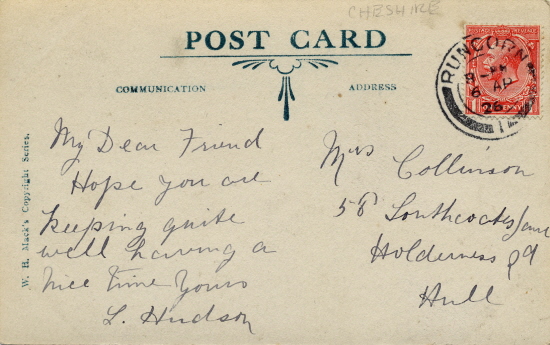 CHESHIRE
POST CARD
COMMUNICATION
ADDRESS
RUNCORN
6 AP
26
W. H. Mack's Copyright Series.
My Dear Friend
Hope you are
keeping quite
well having a
nice time Yours
L. Hudson
Mrs Collinson
58 Southcoates Lane
Holderness Rd
Hull